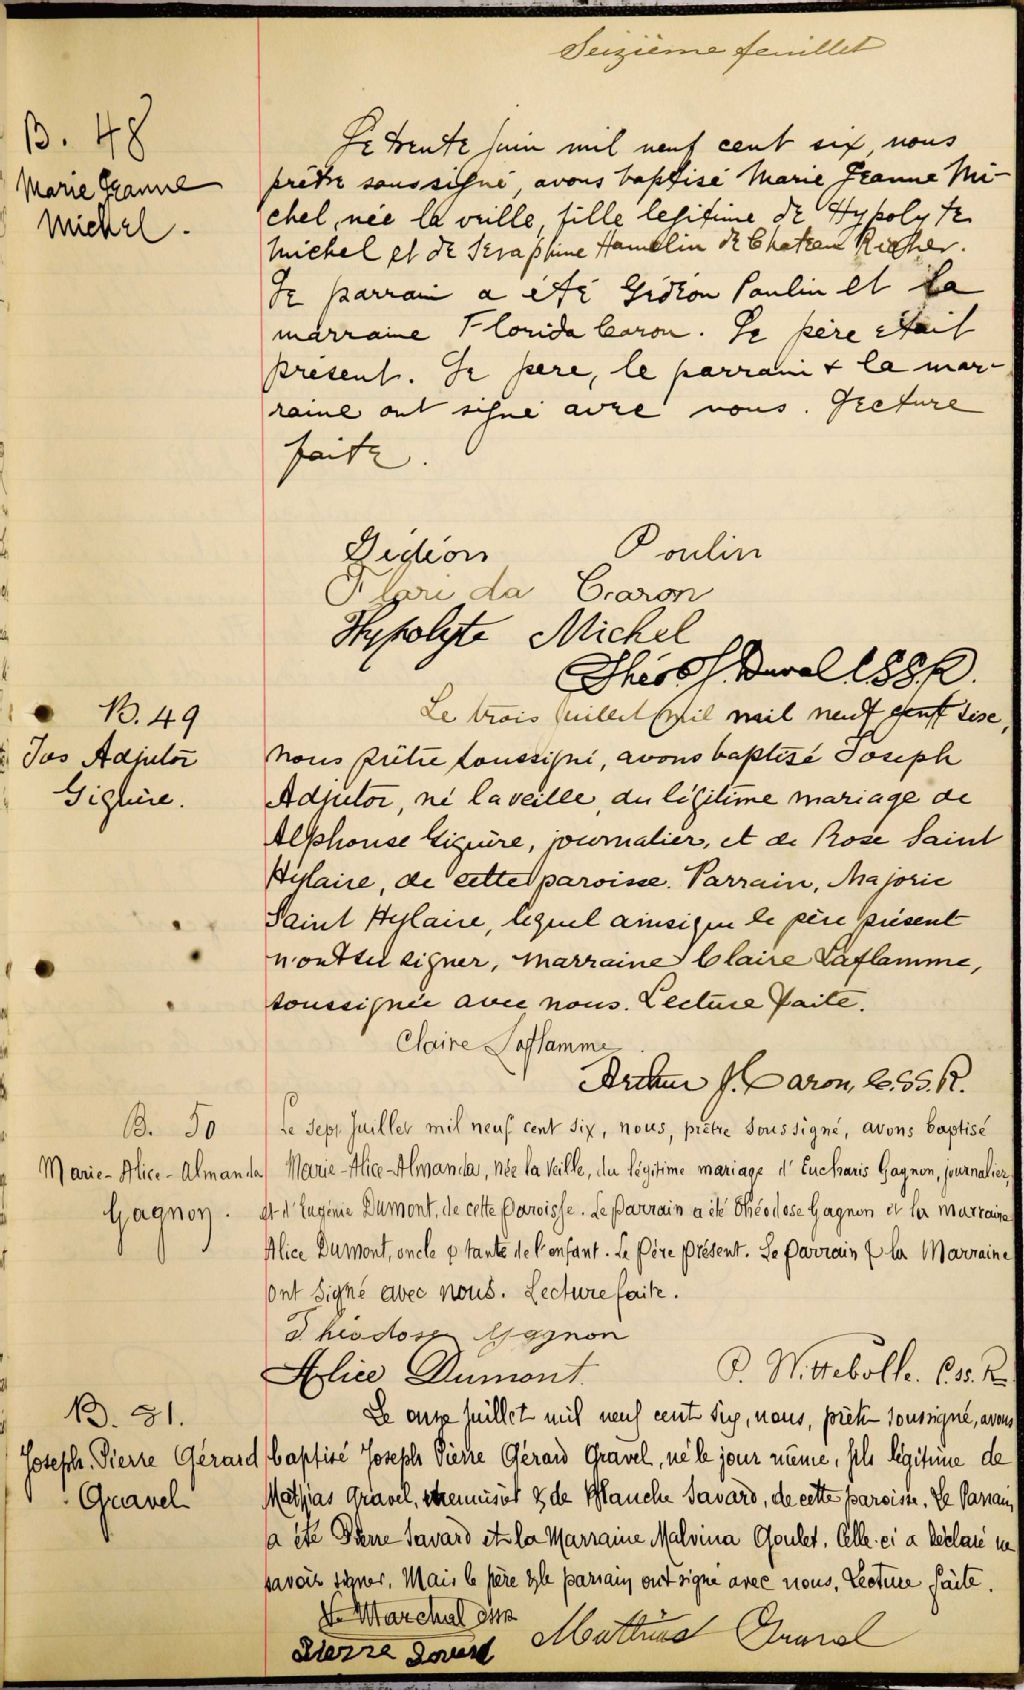 Seizième feuillet
B. 48
Marie Jeanne
Michel.
Le trente juin mil neuf cent six, nous
prêtre soussigné, avons baptisé Marie Jeanne Mi-
chel, née la veille, fille legitime de Hypolyte
Michel et de Seraphine Hamelin de Chateau Richer.
Le parrain a été Gédéon Poulin et la
marraine Florida Caron. Le père etait
présent. Le père, le parrain & la mar-
raine ont signé avec nous. Lecture
faite.
Gédéon Poulin
Florida Caron
Hypolyte Michel
Théo. J. Duval C.SS.R.
B. 49
Jos Adjutor
Giguère.
Le trois Juillet mil mil neuf cent sise,
nous prêtre soussigné, avons baptisé Joseph
Adjutor, né la veille, du légitime mariage de
Alphonse Giguère, journalier, et de Rose Saint
Hylaire, de cette paroisse. Parrain, Majorie
Saint Hylaire, lequel ainsi que le père présent
n'ont su signer, marraine Claire Laflamme,
soussignée avec nous. Lecture faite.
Claire Laflamme
Arthur J. Caron, C.SS.R.
B. 50
Marie-Alice-Almanda
Gagnon.
Le sept Juillet mil neuf cent six, nous, prêtre soussigné, avons baptisé
Marie-Alice-Almanda, née la veille, du légitime mariage d'Eucharis Gagnon, journalier,
et d'Eugénie Dumont, de cette paroisse. Le parrain a été Théodose Gagnon et la marraine
Alice Dumont, oncle & tante de l'enfant. Le Père présent. Le parrain & la Marraine
ont signé avec nous. Lecture faite.
Théodose Gagnon
Alice Dumont. P. Wittebolle. C.ss.R.
B. 51.
Joseph Pierre Gérard
Gravel
Le onze juillet mil neuf cent six, nous, prêtre soussigné, avons
baptisé Joseph Pierre Gérard Gravel, né le jour même, fils légitime de
Mathias Gravel, menuisier & de Blanche Savard, de cette paroisse. Le Parrain
a été Pierre Savard et la Marraine Malvina Goulet. Celle-ci a déclaré ne
savoir signer. Mais le père & le parrain ont signé avec nous. Lecture faite.
Marchal cssR
Mathias Gravel
Pierre Savard